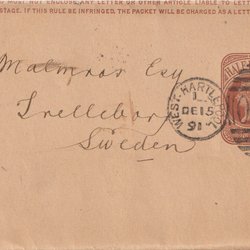 D MUST NOT ENCLOSE ANY LETTER OR
POSTAGE. IF THIS RULE BE INFRINGED, THE PACKET WILL BE CHARGED AS A LETTER
Malmros Esq
Trelleborg
Sweden
WEST-HARTLEPOOL
L
DE 15
91
HALF